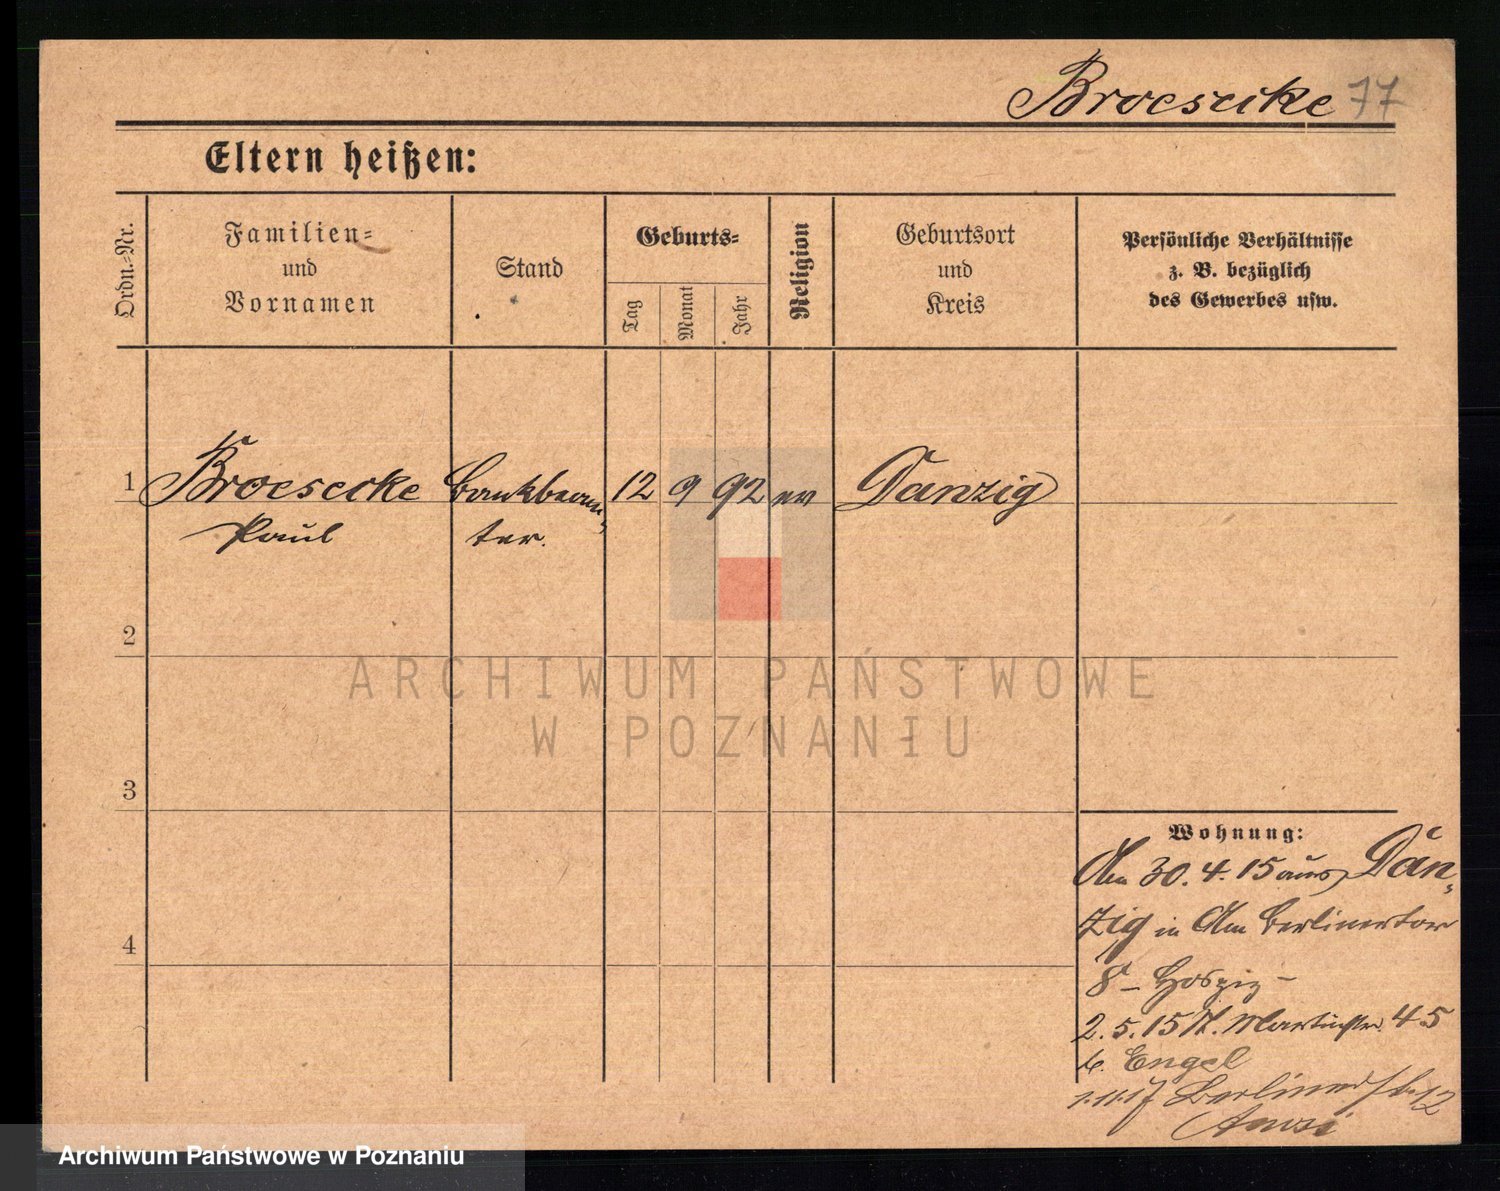 Broesecke 77
Eltern heißen:
Ordn.-Nr.
Familien-
und
Vornamen
Stand
Geburts-
Tag
Monat
Jahr
Religion
Geburtsort
und
Kreis
Persönliche Verhältnisse
z. B. bezüglich
des Gewerbes usw.
1 Broesecke Bankbeam- 12 9 92 ev Danzig
Paul ter.
2
3
4
Wohnung:
Am 30. 4. 15 aus Dan-
zig in Am Berlinertor
8 – Hospiz –
2. 5. 15 St. Martinstr. 45
b. Engel
1.11.17 Berlinerstr. 12
ARCHIWUM PAŃSTWOWE
W POZNANIU
Archiwum Państwowe w Poznaniu